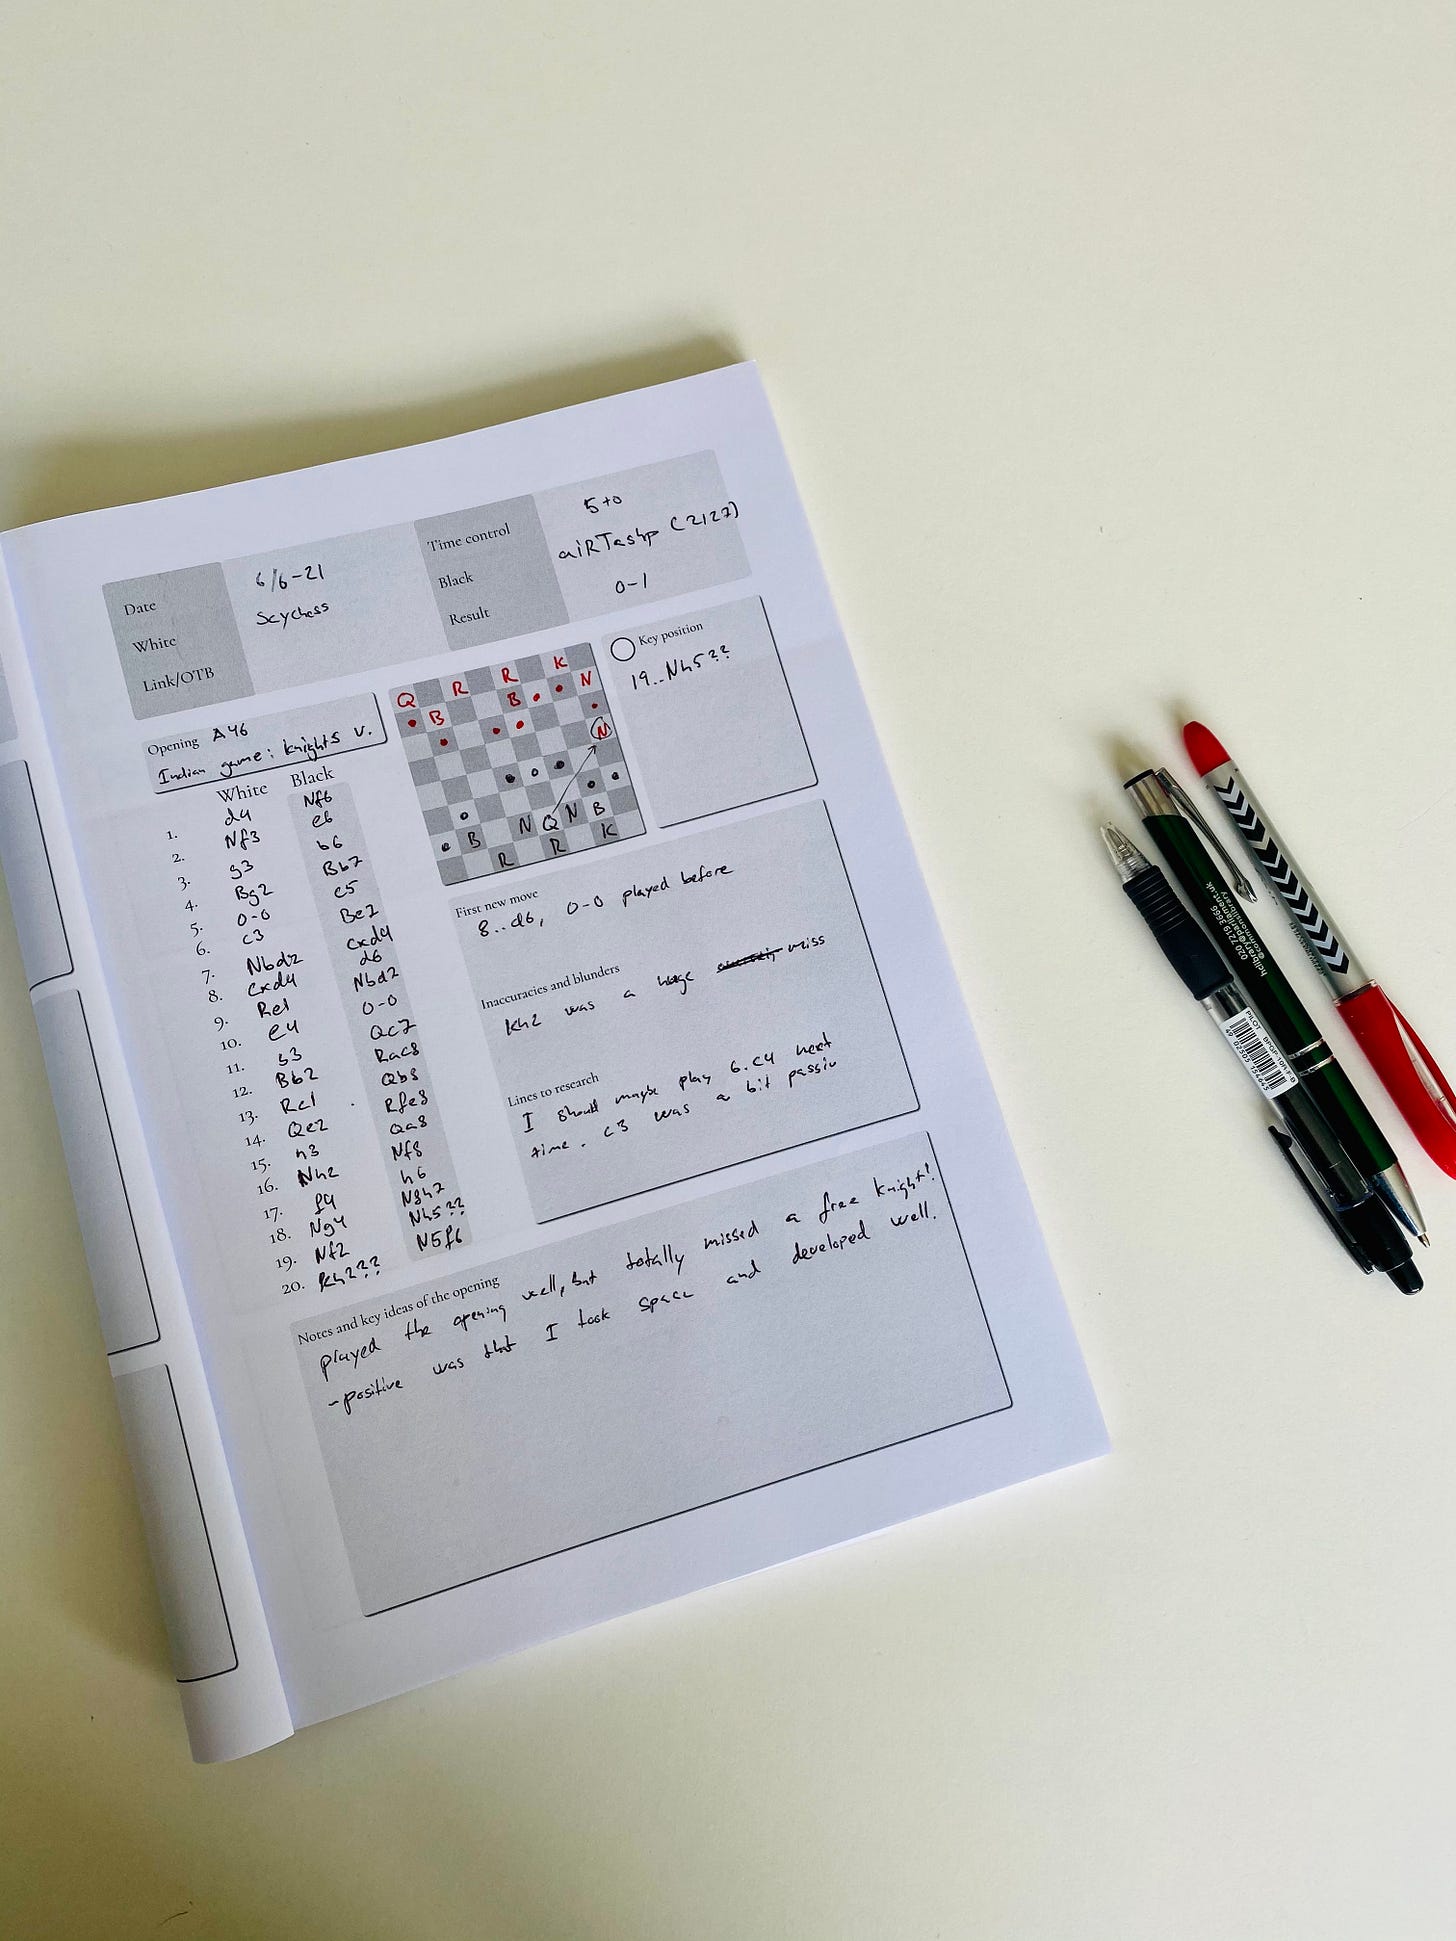 Date 6/6-21 Time control 5+0
White Scychess Black aiRTashp (2127)
Link/OTB Result 0-1
Opening A46
Indian game: knights v.
Key position
19..Nh5??
Q R R K
B B N
N
N Q N B
B
R R K
White Black
1. d4 Nf6
2. Nf3 e6
3. g3 b6
4. Bg2 Bb7
5. 0-0 c5
6. c3 Be7
7. Nbd2 cxd4
8. cxd4 d6
9. Re1 Nbd7
10. e4 0-0
11. b3 Qc7
12. Bb2 Rac8
13. Rc1 Qb8
14. Qe2 Rfe8
15. h3 Qa8
16. Nh2 Nf8
17. f4 h6
18. Ng4 N8h7
19. Nf2 Nh5??
20. Kh2?? N5f6
First new move
8..d6, 0-0 played before
Inaccuracies and blunders
Kh2 was a huge miss
Lines to research
I should maybe play 6.c4 next
time. c3 was a bit passiv
Notes and key ideas of the opening
played the opening well, but totally missed a free knight!
-positive was that I took space and developed well.
020 7219 3666
hcllibrary@parliament.uk
@commonslibrary
PILOT BPGP-10R-F-B
4 902505 154643